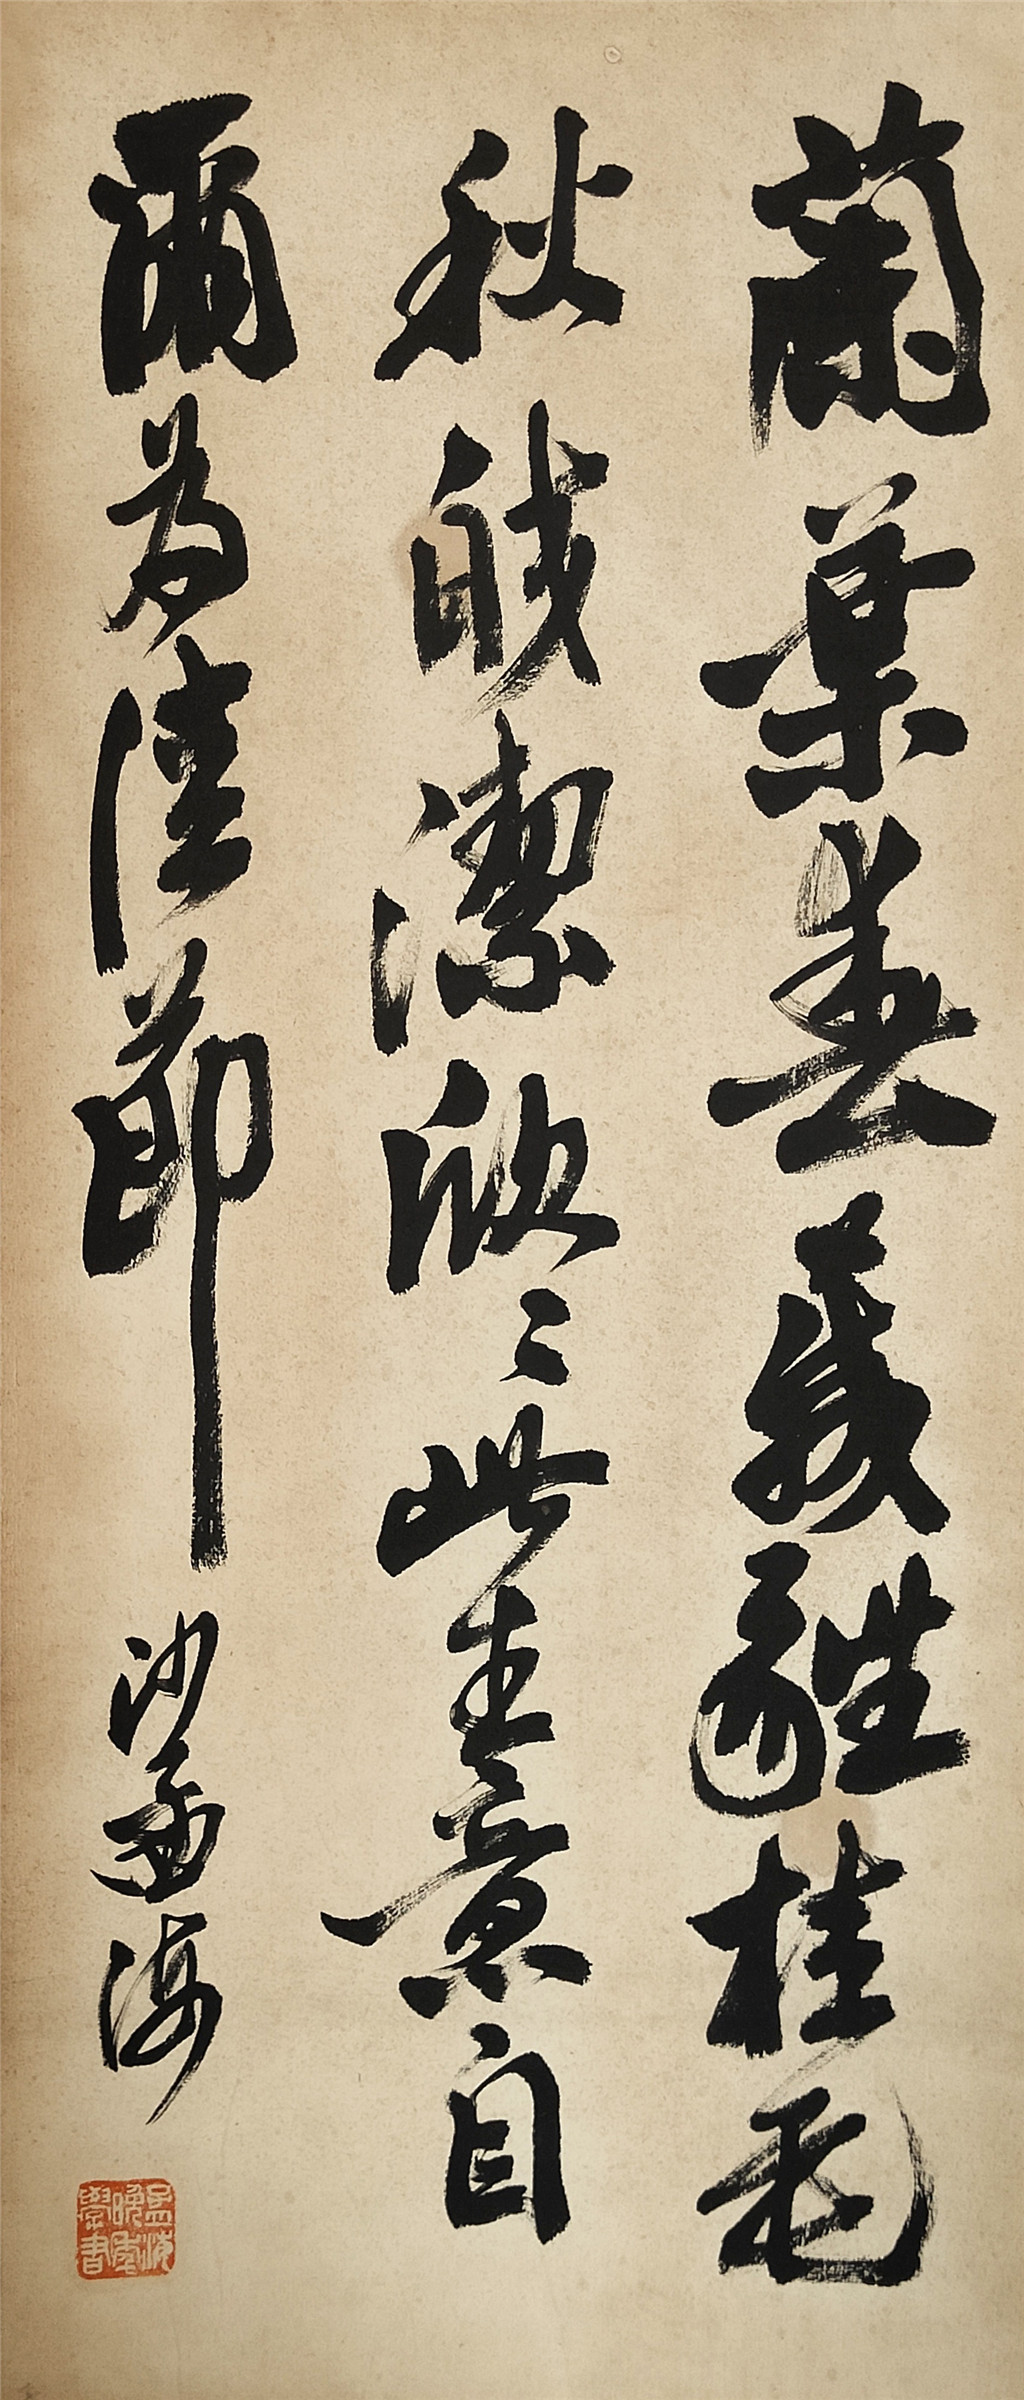 蘭葉春葳蕤桂花
秋皎潔欣〻此生意自
爾為佳節
沙孟海
孟海晚年學書